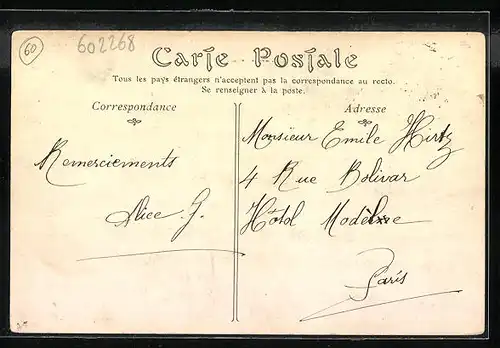 60
602268
Carte Postale
Tous les pays étrangers n'acceptent pas la correspondance au recto.
Se renseigner à la poste.
Correspondance
Remerciements
Alice. G.
Adresse
Monsieur Emile Hirtz
4 Rue Bolivar
Hôtol Modèlxre
Paris